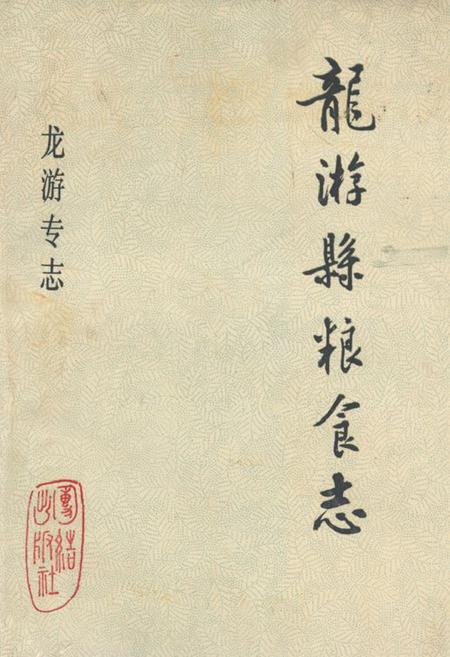 龍游縣粮食志
龙游专志
團結
出版社